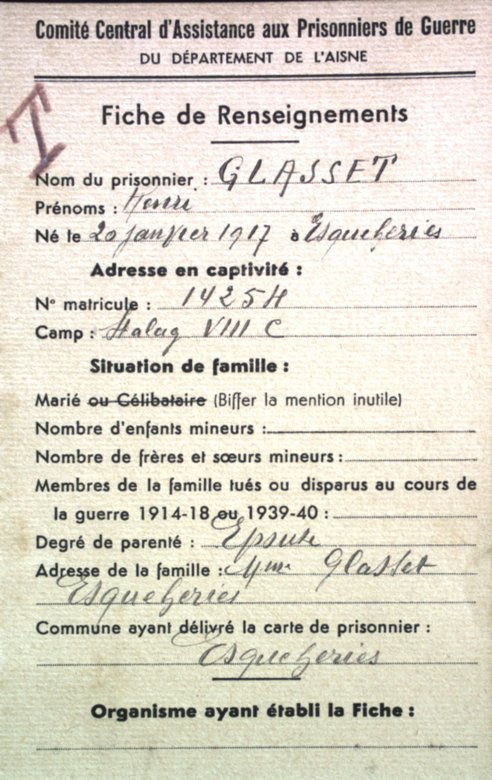 Comité Central d'Assistance aux Prisonniers de Guerre
DU DÉPARTEMENT DE L'AISNE
T
Fiche de Renseignements
Nom du prisonnier : GLASSET
Prénoms : Henri
Né le 20 janvier 1917 à Esqueheries
Adresse en captivité :
N° matricule : 14254
Camp : Stalag VIII C
Situation de famille :
Marié ou Célibataire (Biffer la mention inutile)
Nombre d'enfants mineurs :
Nombre de frères et sœurs mineurs :
Membres de la famille tués ou disparus au cours de
la guerre 1914-18 ou 1939-40 :
Degré de parenté : Epouse
Adresse de la famille : Mme Glasset
Esqueheries
Commune ayant délivré la carte de prisonnier :
Esqueheries
Organisme ayant établi la Fiche :